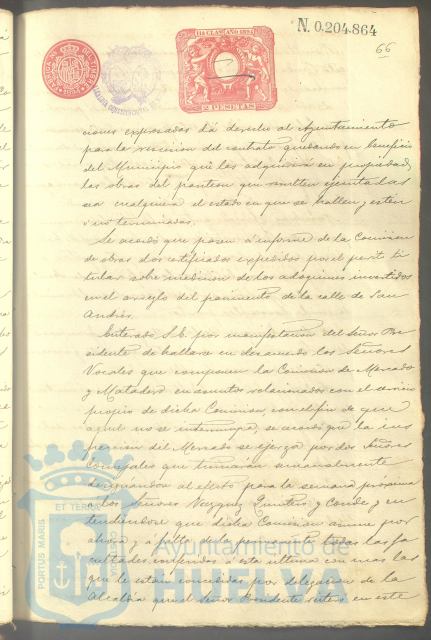 N. 0.204.864
66
11ª CLASE AÑO 1894
2 PESETAS
ciones expresadas dá derecho al Ayuntamiento
para la rescisión del contrato quedando en beneficio
del Municipio que las adquirirá en propiedad,
las obras del panteon que resulten ejecutadas
sea cualquiera el estado en que se hallen, estén
ó no terminadas.
Se acordó que pasen á informe de la Comision
de obras dos certificados expedidos por el perito ti
tular sobre medicion de los adoquines invertidos
en el arreglo del pavimento de la calle de San
Andrés.
Enterado S.E. por manifestacion del Señor Pre
sidente de hallarse en desacuerdo los Señores
Vocales que componen la Comision de Mercado
y Matadero en asuntos relacionados con el servicio
propio de dicha Comision, con el fin de que
aquel no se interrumpa, se acordó que la ins
peccion del Mercado se ejerza por dos Señores
Concejales que turnarán semanalmente
designandose al efecto para la semana proxima
los Señores Vazquez Quintero y Conde y en
tendiendose que dicha Comision asume por
ahora y á falta de la permanente todas las fa
cultades conferidas á esta ultima con mas las
que le estan concedidas por delegacion de la
Alcaldia que el Señor Presidente reitera en este
PORTUS MARIS
ET TERRAE
Ayuntamiento de
HUELVA